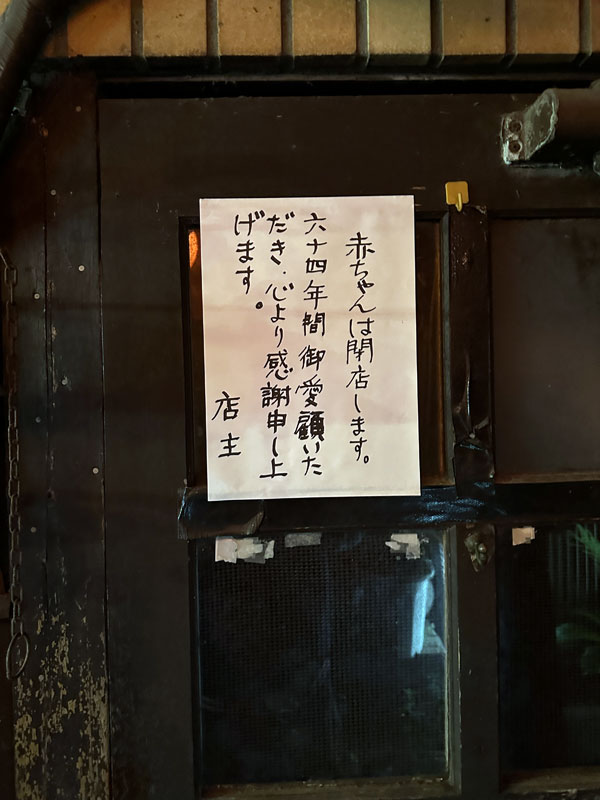 赤ちゃんは閉店します。
六十四年間御愛顧いた
だき、心より感謝申し上
げます。
店主